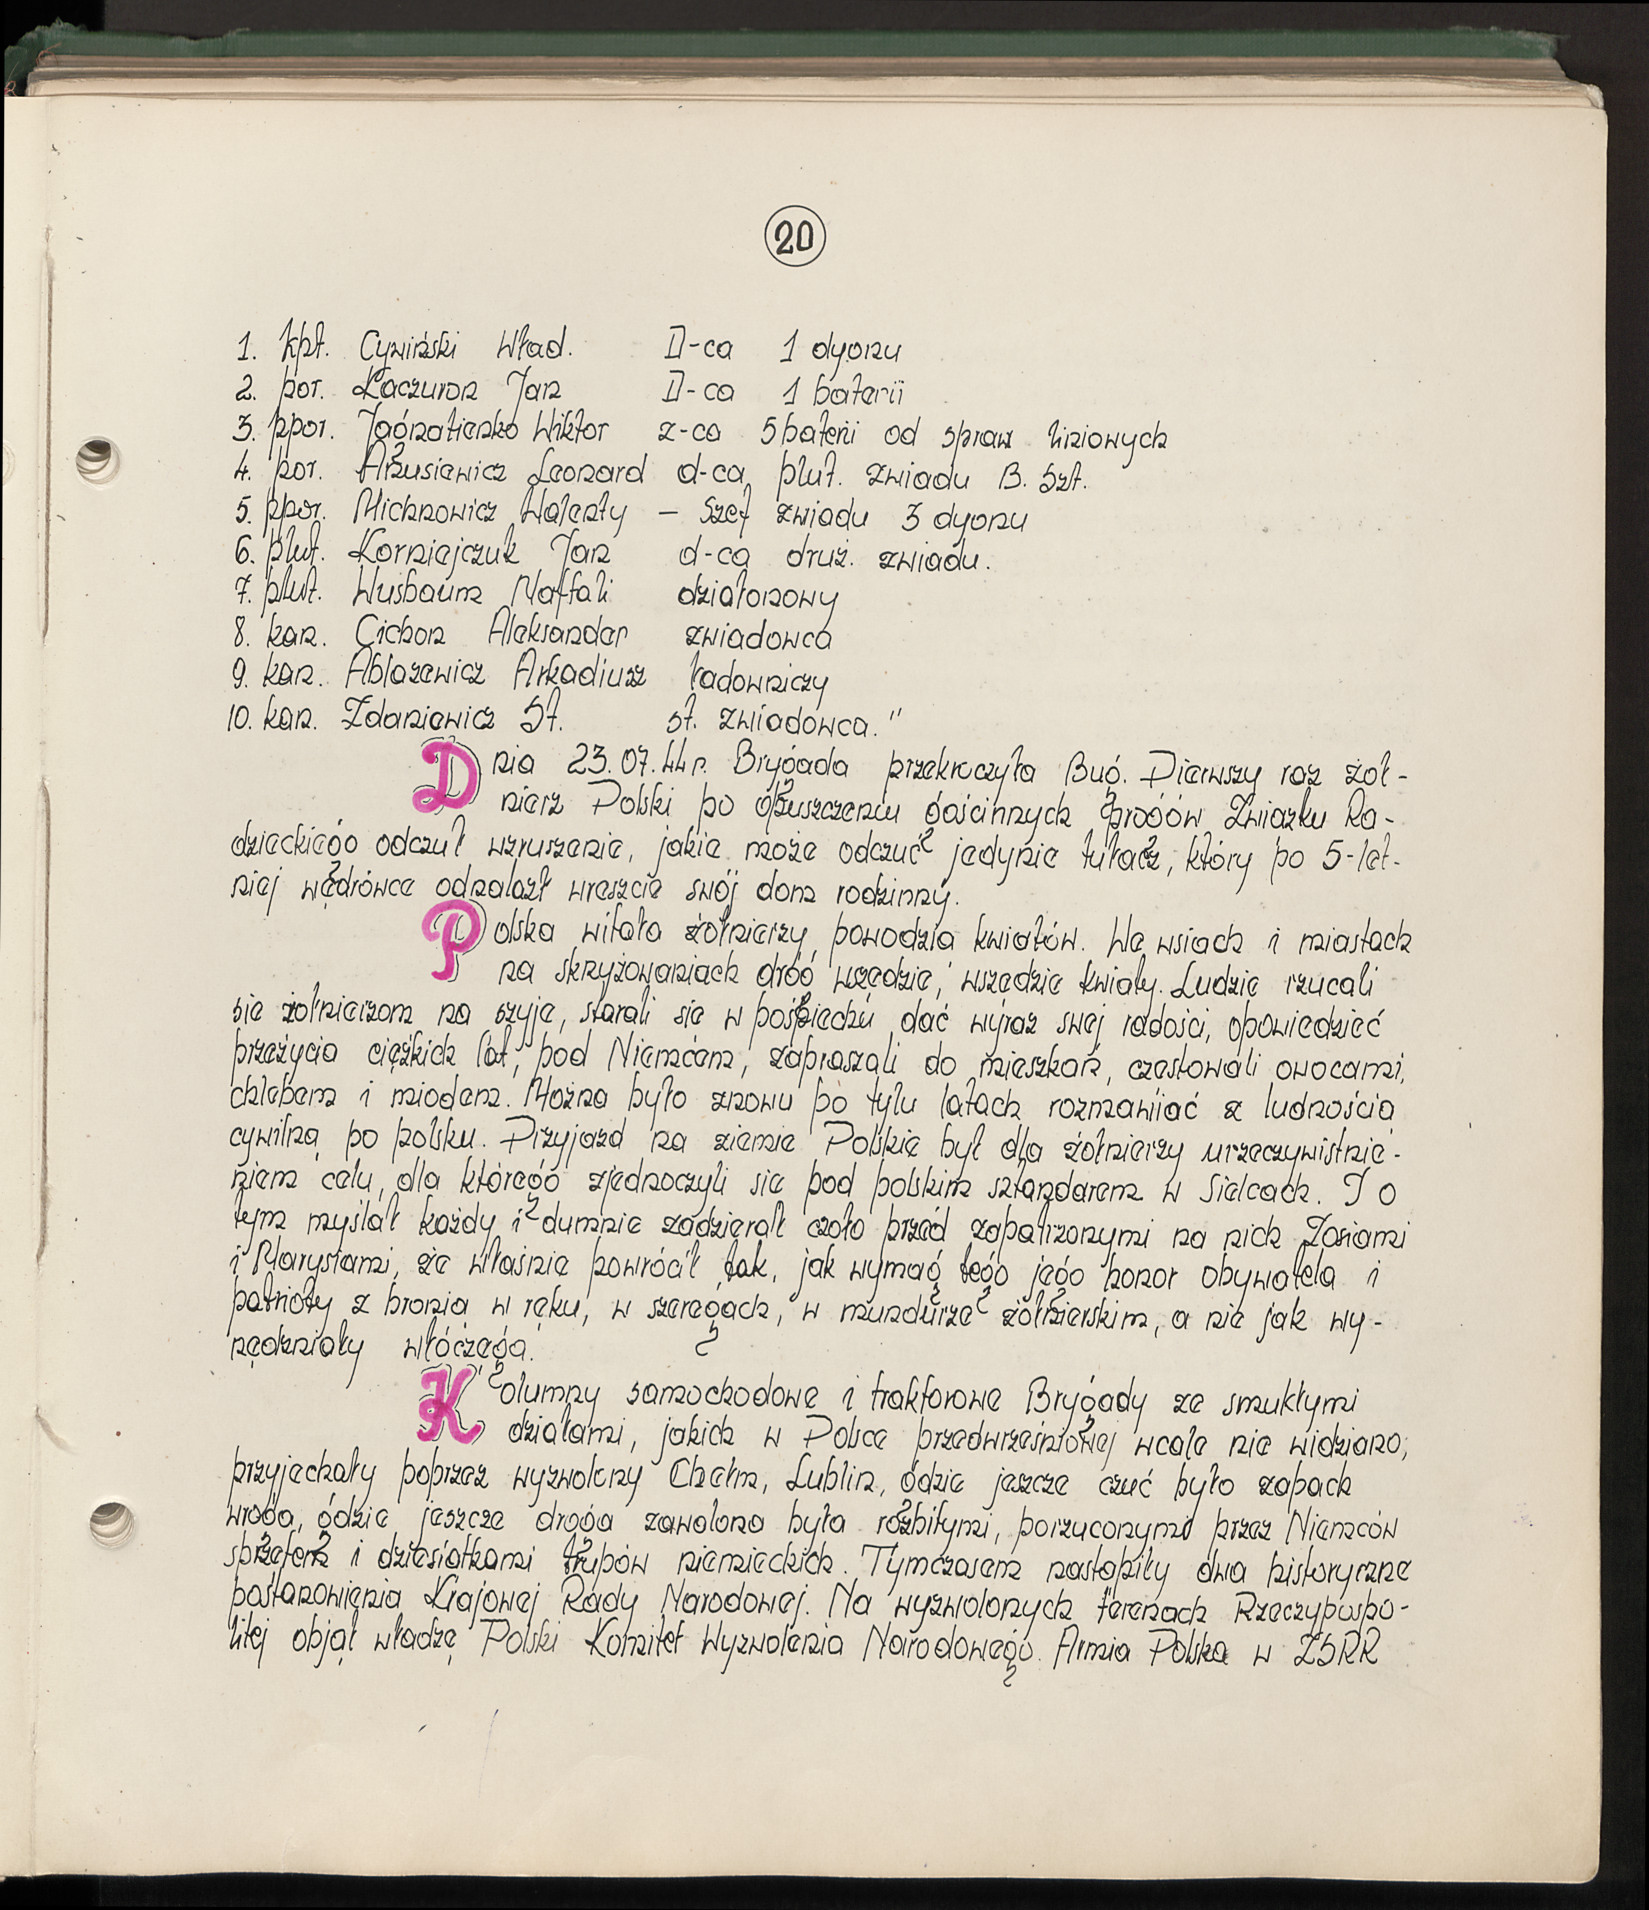 20
1. kpt. Cywiński Wład. D-ca 1 dyonu
2. por. Kaczuron Jan D-ca 1 baterii
3. ppor. Jagnatienko Wiktor z-ca 5 baterii od spraw liniowych
4. por. Arzusiewicz Leonard d-ca plut. zwiadu B. Szt.
5. ppor. Michnowicz Walenty – Szef zwiadu 3 dyonu
6. plut. Korniejczuk Jan d-ca druż. zwiadu.
7. plut. Wusbaum Naftali działonowy
8. kan. Cichon Aleksander zwiadowca
9. kan. Ablazewicz Arkadiusz ładowniczy
10. kan. Zdaniewicz St. st. zwiadowca."
Dnia 23.07.44r. Brygada przekroczyła Bug. Pierwszy raz żoł-
nierz Polski po opuszczeniu gościnnych progów Związku Ra-
dzieckiego odczuł wzruszenie, jakie może odczuć jedynie tułacz, który po 5-let-
niej wędrówce odnalazł wreszcie swój dom rodzinny.
Polska witała żołnierzy powodzią kwiatów. We wsiach i miastach
na skrzyżowaniach dróg wszędzie, wszędzie kwiaty. Ludzie rzucali
się żołnierzom na szyję, starali się w pośpiechu dać wyraz swej radości, opowiedzieć
przeżycia ciężkich lat, pod Niemcem, zapraszali do mieszkań, częstowali owocami,
chlebem i miodem. Można było znowu po tylu latach rozmawiać z ludnością
cywilną po polsku. Przyjazd na ziemie Polskie był dla żołnierzy urzeczywistnie-
niem celu, dla którego zjednoczyli się pod polskim sztandarem w Sielcach. I o
tym myślał każdy i dumnie zadzierał czoło przed zapatrzonymi na nich Zosiami
i Marysiami, że właśnie powrócił tak, jak wymagł tego jego honor obywatela i
patrioty z bronią w ręku, w szeregach, w mundurze żołnierskim, a nie jak wy-
nędzniały włóczęga.
Kolumny samochodowe i traktorowe Brygady ze smukłymi
działami, jakich w Polsce przedwrześniowej wcale nie widziano,
przyjechały poprzez wyzwolony Chełm, Lublin, gdzie jeszcze czuć było zapach
wroga, gdzie jeszcze droga zawalona była rozbitymi, porzuconymi przez Niemców
sprzętem i dziesiątkami trupów niemieckich. Tymczasem nastąpiły dwa historyczne
postanowienia Krajowej Rady Narodowej. Na wyzwolonych terenach Rzeczypospo-
litej objął władzę Polski Komitet Wyzwolenia Narodowego. Armia Polska w ZSRR